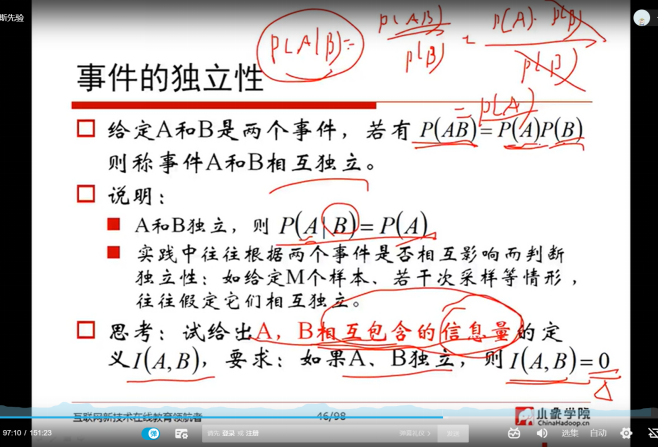 斯先验
P(A|B) = P(AB) / P(B) = P(A)·P(B) / P(B)
= P(A)
事件的独立性
给定A和B是两个事件，若有 P(AB)=P(A)P(B)
则称事件A和B相互独立。
说明：
A和B独立，则 P(A|B)=P(A)
实践中往往根据两个事件是否相互影响而判断
独立性：如给定M个样本、若干次采样等情形，
往往假定它们相互独立。
思考：试给出A，B相互包含的信息量的定
义I(A,B)，要求：如果A、B独立，则I(A,B)=0
互联网新技术在线教育领航者
46/98
小象学院
ChinaHadoop.cn
97:10 / 151:23
请先 登录 或 注册
弹幕礼仪 >
发送
选集
自动